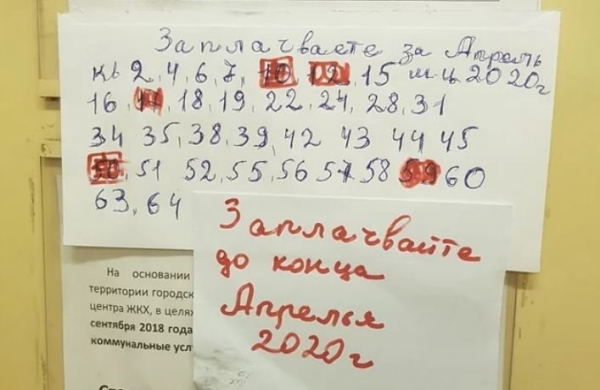 Заплачваете за Апрель
кв 2, 4, 6, 7, 10, 12, 15 м-ц 2020г
16, 17, 18, 19, 22, 24, 28, 31
34 35, 38, 39, 42 43 44 45
50, 51 52, 55, 56 57 58 59 60
63, 64
Заплачвайте
до конца
Апрелья
2020г
На основании
территории городск
центра ЖКХ, в целях
сентября 2018 года
коммунальные усл